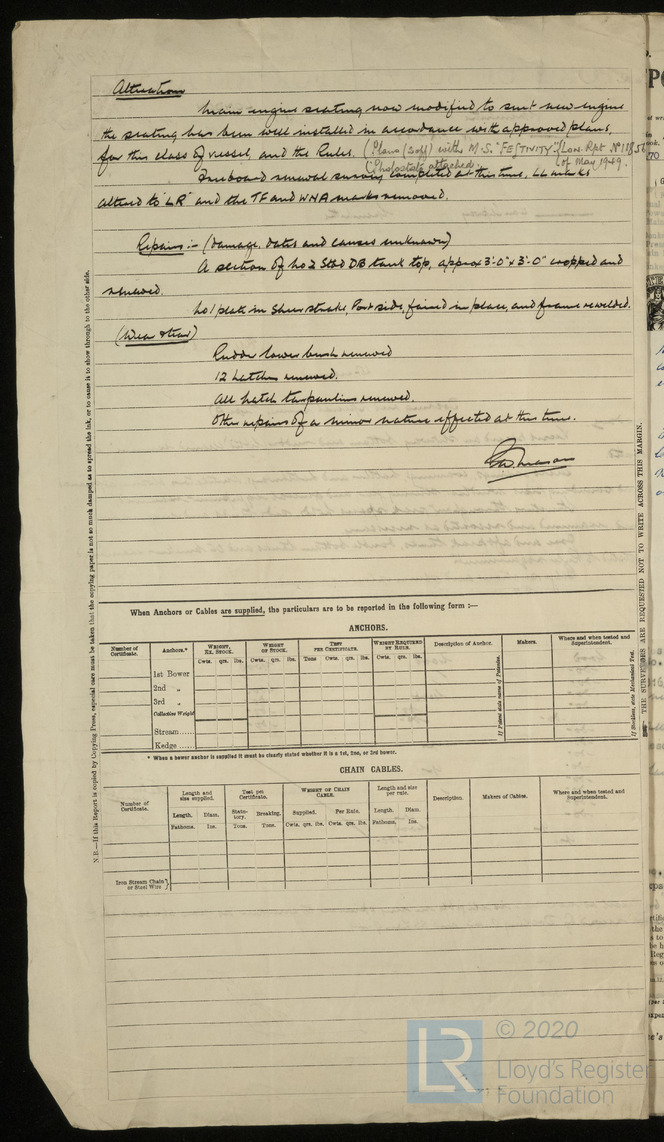 Alteration
Main engine seating now modified to suit new engine
the seating has been well installed in accordance with approved plans,
for this class of vessel, and the Rules. (Plans (2off) with M.S. "FESTIVITY" Lon. Rpt No
(Photostats attached. of May 1949.
Freeboard renewal survey completed at this time. LL marks
altered to "LR" and the TF and WNA marks removed.
Repairs :- (Damage. dates and causes unknown)
A section of No 2 Stbd DB tank top, approx 3'-0" x 3'-0" cropped and
renewed.
No 1 plate in Sheer strake, Port side, faired in place, and frame rewelded.
(Wear & tear)
Rudder lower bush renewed
12 hatches renewed.
All hatch tarpaulins renewed.
Other repairs of a minor nature effected at this time.
When Anchors or Cables are supplied, the particulars are to be reported in the following form :—
ANCHORS.
Number of Certificate. Anchors.* WEIGHT, EX. STOCK. WEIGHT OF STOCK. TEST PER CERTIFICATE. WEIGHT REQUIRED BY RULE. Description of Anchor. Makers. Where and when tested and Superintendent.
Cwts. qrs. lbs. Cwts. qrs. lbs. Tons Cwts. qrs. lbs. Cwts. qrs. lbs.
1st Bower
2nd „
3rd „
Collective Weight
Stream
Kedge
If Patent state name of Patentee.
If Stockless, state Mechanical Test.
* When a bower anchor is supplied it must be clearly stated whether it is a 1st, 2nd, or 3rd bower.
CHAIN CABLES.
Number of Certificate. Length and size supplied. Test per Certificate. WEIGHT OF CHAIN CABLE. Length and size per rule. Description. Makers of Cables. Where and when tested and Superintendent.
Length. Diam. Statutory. Breaking. Supplied. Per Rule. Length. Diam.
Fathoms. Ins. Tons. Tons. Cwts. qrs. lbs. Cwts. qrs. lbs. Fathoms. Ins.
Iron Stream Chain or Steel Wire }
N.B.—If this Report is copied by Copying Press, especial care must be taken that the copying paper is not so much damped as to spread the ink, or to cause it to show through to the other side.
THE SURVEYORS ARE REQUESTED NOT TO WRITE ACROSS THIS MARGIN.
LR
© 2020
Lloyd's Register
Foundation